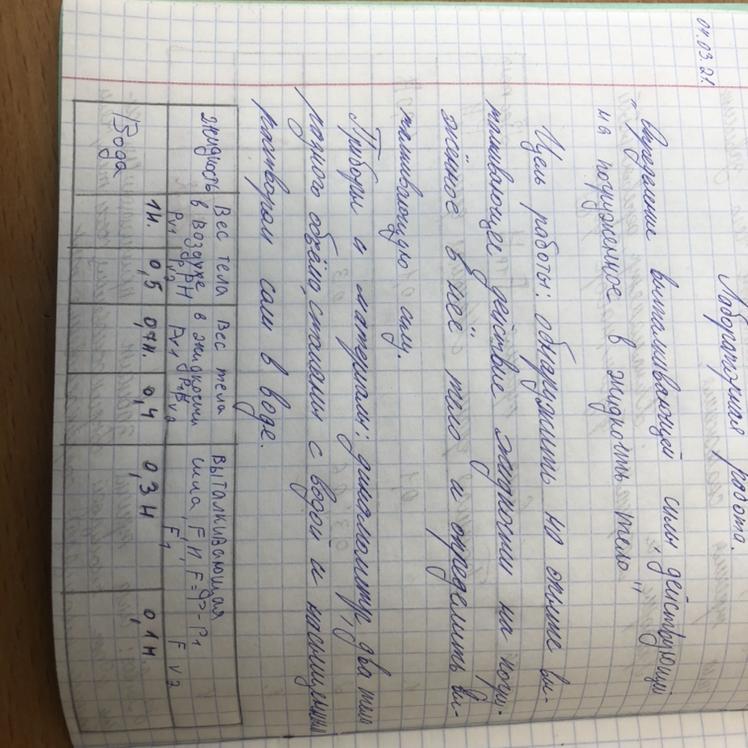 04.03.21.
Лабораторная работа.
"Определение выталкивающей силы, действующей
на погруженное в жидкость тело"
Цель работы: обнаружить на опыте вы-
талкивающее действие жидкости на погру-
жённое в неё тело и определить вы-
талкивающую силу.
Приборы и материалы: динамометр, два тела
разного объёма, стаканы с водой и насыщенным
раствором соли в воде.
жидкость Вес тела в воздухе Вес тела в жидкости выталкивающая сила, F, H F=P-P1
Pv1 Pv2 Pv1 F1 F v2
Вода 1Н. 0,5 0,7Н. 0,4 0,3 Н 0,1Н.